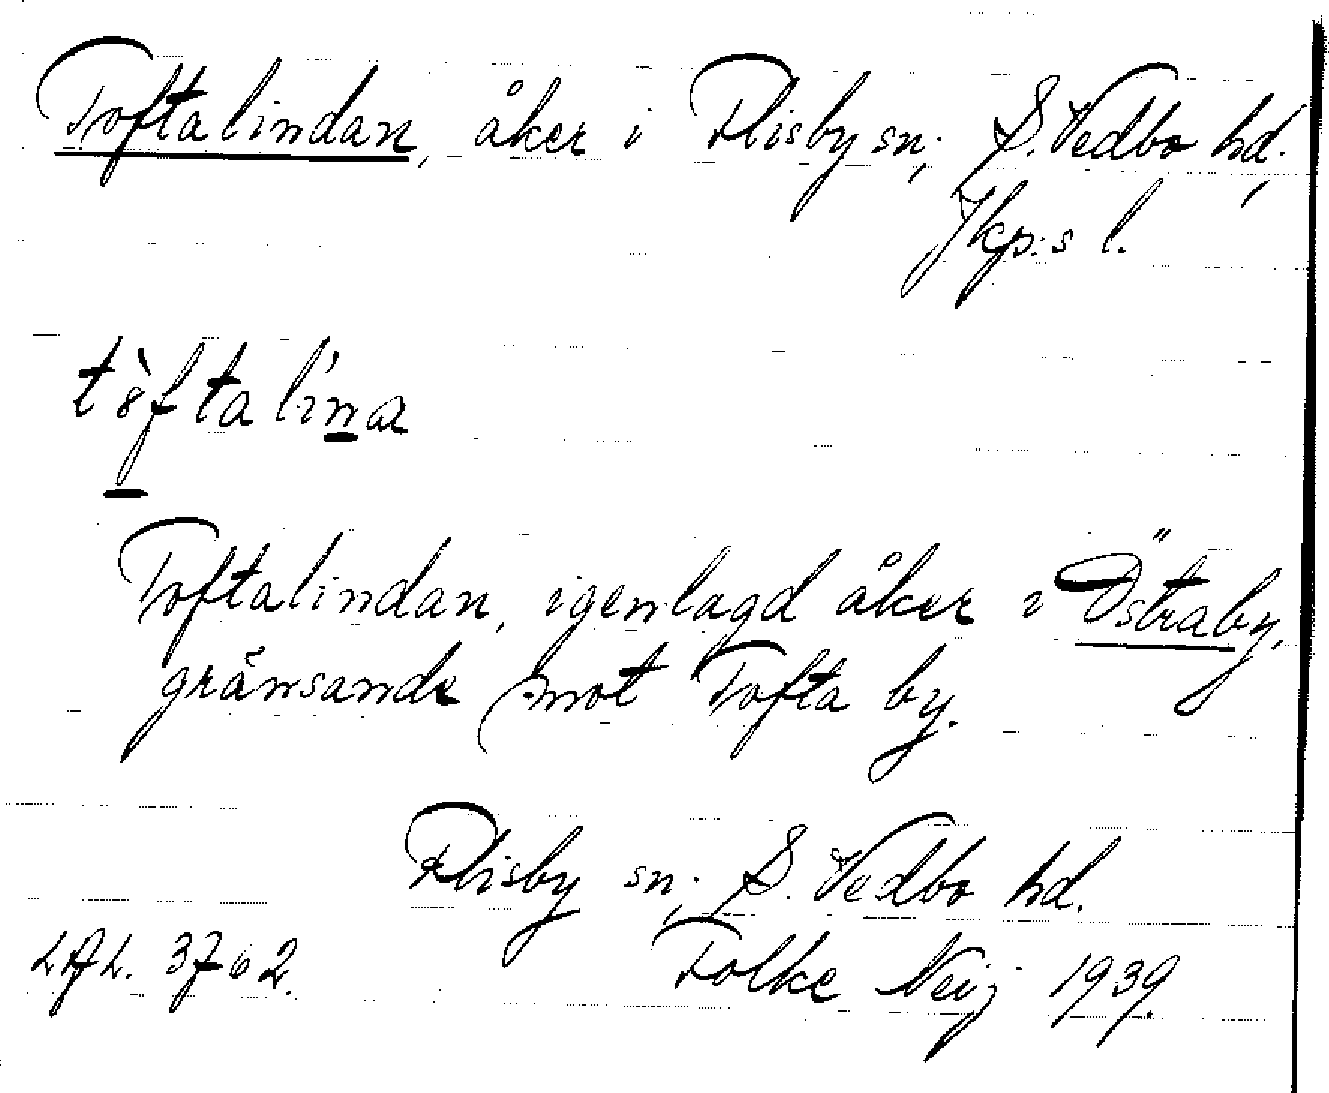 Toftalindan, åker i Flisby sn., S. Vedbo hd.,
Jkp:s l.
tòftalína
Toftalindan, igenlagd åker i Östraby,
gränsande mot Tofta by.
Flisby sn., S. Vedbo hd.
LAL. 3762. Folke Neij 1939.